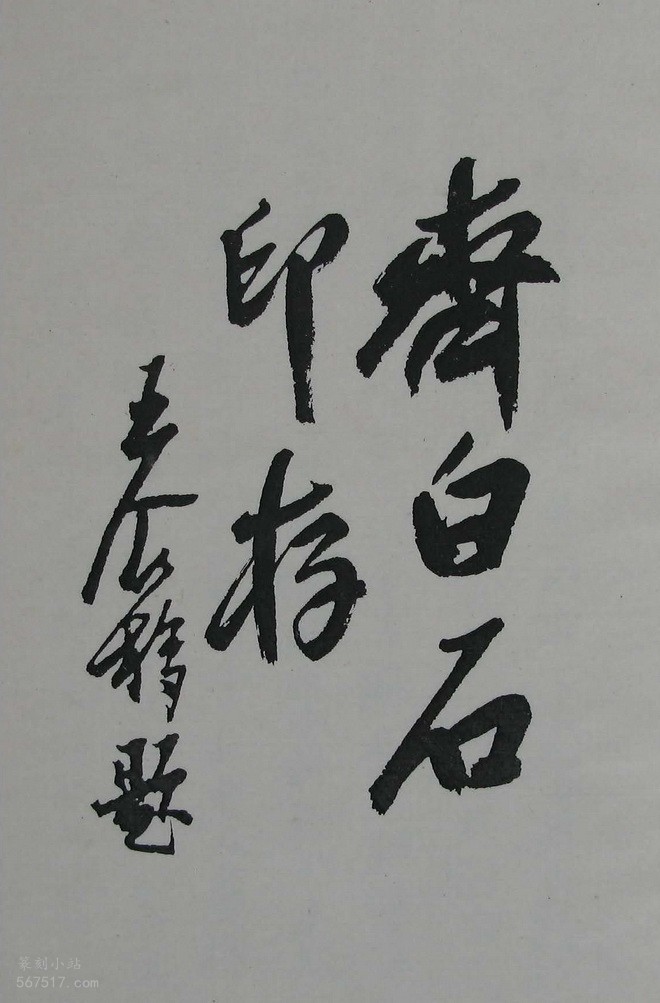 齊白石
印存
王个簃題
篆刻小站
567517.com